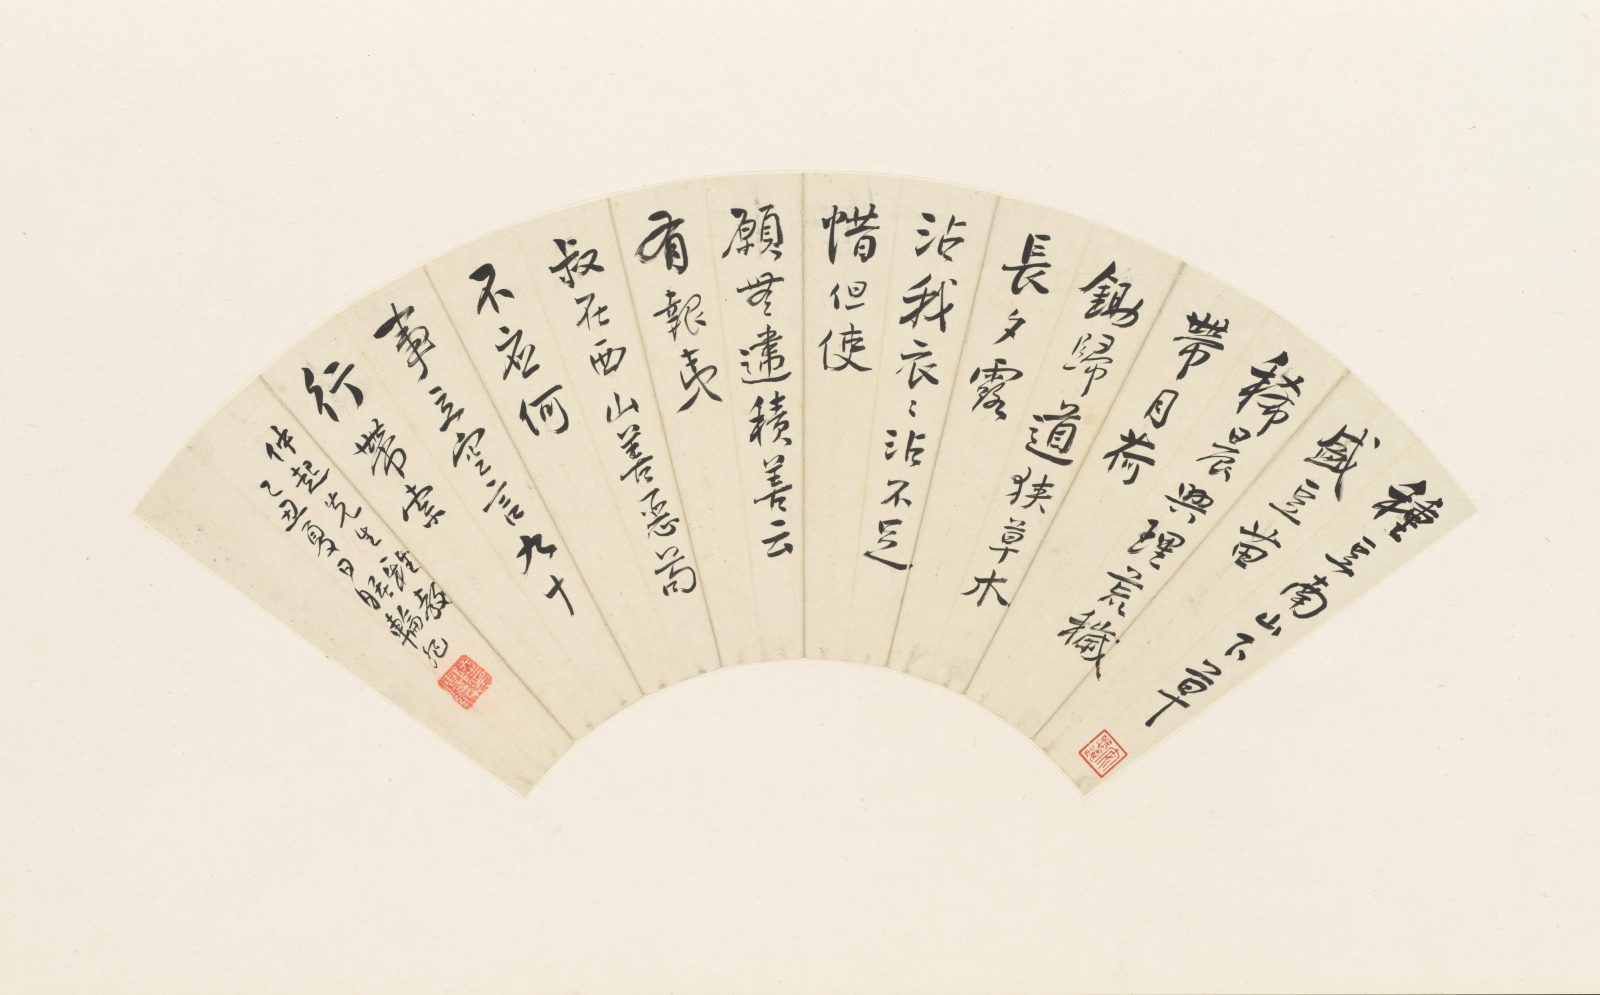 種豆南山下草
盛豆苗
稀晨興理荒穢
帶月荷
鋤歸道狹草木
長夕露
沾我衣〻沾不足
惜但使
願無違積善云
有報夷
叔在西山善惡茍
不應何
事立空言九十
行帶索
仲起先生
乙丑夏日